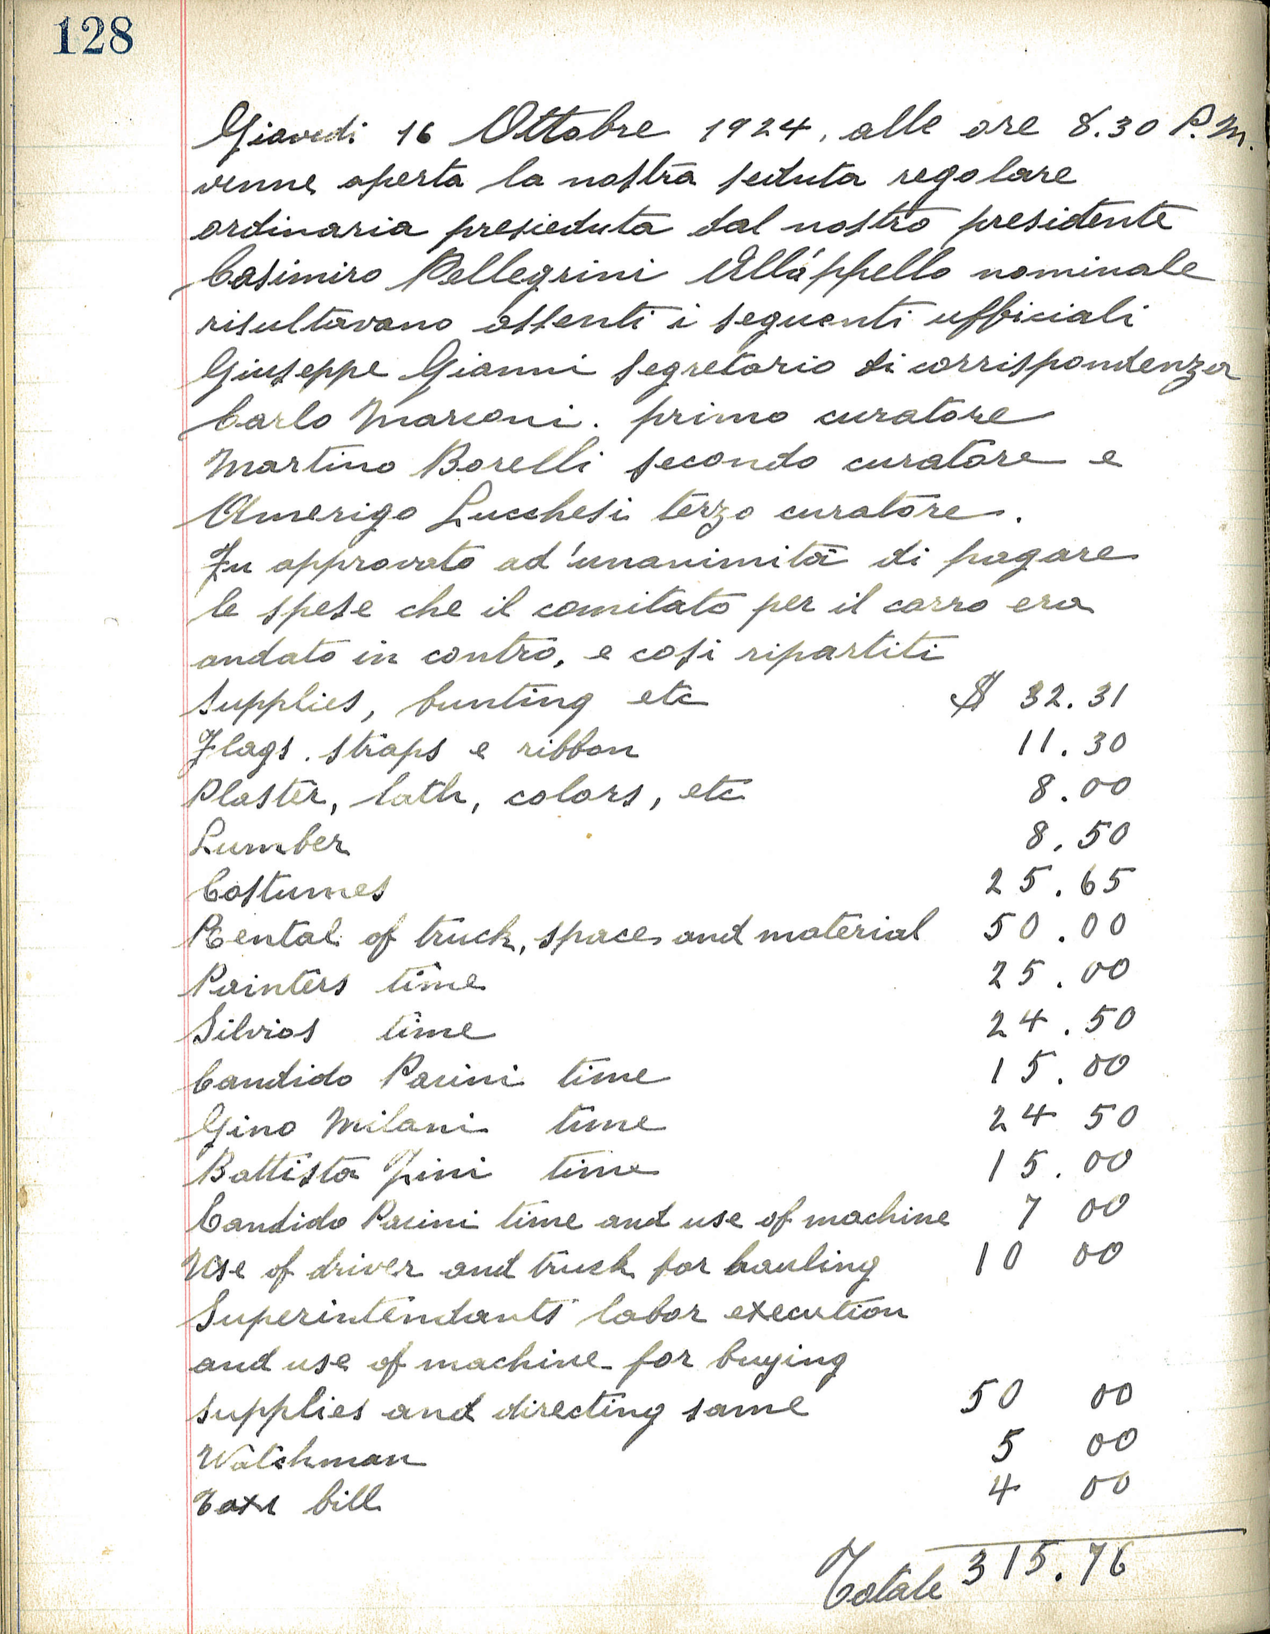 128
Giovedi 16 Ottobre 1924, alle ore 8.30 P.M.
venne aperta la nostra seduta regolare
ordinaria presieduta dal nostro presidente
Casimiro Pellegrini All'appello nominale
risultavano assenti i seguenti ufficiali
Giuseppe Gianni segretario di corrispondenza
Carlo Marconi. primo curatore
Martino Borelli secondo curatore e
Amerigo Lucchesi terzo curatore.
Fu approvato ad'unanimità di pagare
le spese che il comitato per il carro era
andato in contro, e cosi ripartiti
Supplies, bunting etc $ 32.31
Flags. straps e ribbon 11.30
Plaster, lath, colors, etc 8.00
Lumber 8.50
Costumes 25.65
Rental of truck, space and material 50.00
Painters time 25.00
Silvios time 24.50
Candido Parini time 15.00
Gino Milani time 24 50
Battista Fini time 15.00
Candido Parini time and use of machine 7 00
Use of driver and truck for hauling 10 00
Superintendants labor execution
and use of machine for buying
supplies and directing same 50 00
Watchman 5 00
Taxi bill 4 00
Totale 315.76